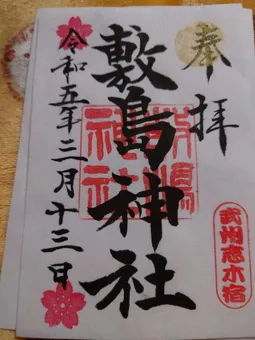 奉拝
敷島神社
敷嶋
神社
令和五年二月十三日
武州志木宿